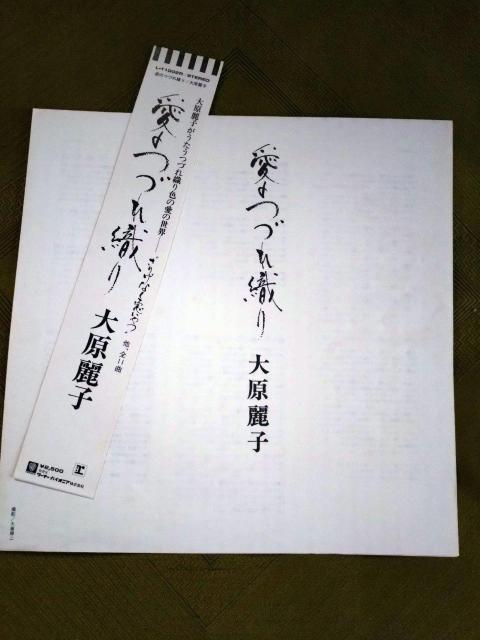 L-11002R・STEREO
愛のつづれ織り/大原麗子
大原麗子がうたうつづれ織り色の愛の世界——
愛のつづれ織り
他、全11曲
大原麗子
¥2,500
ワーナー・パイオニア株式会社
愛のつづれ織り
大原麗子